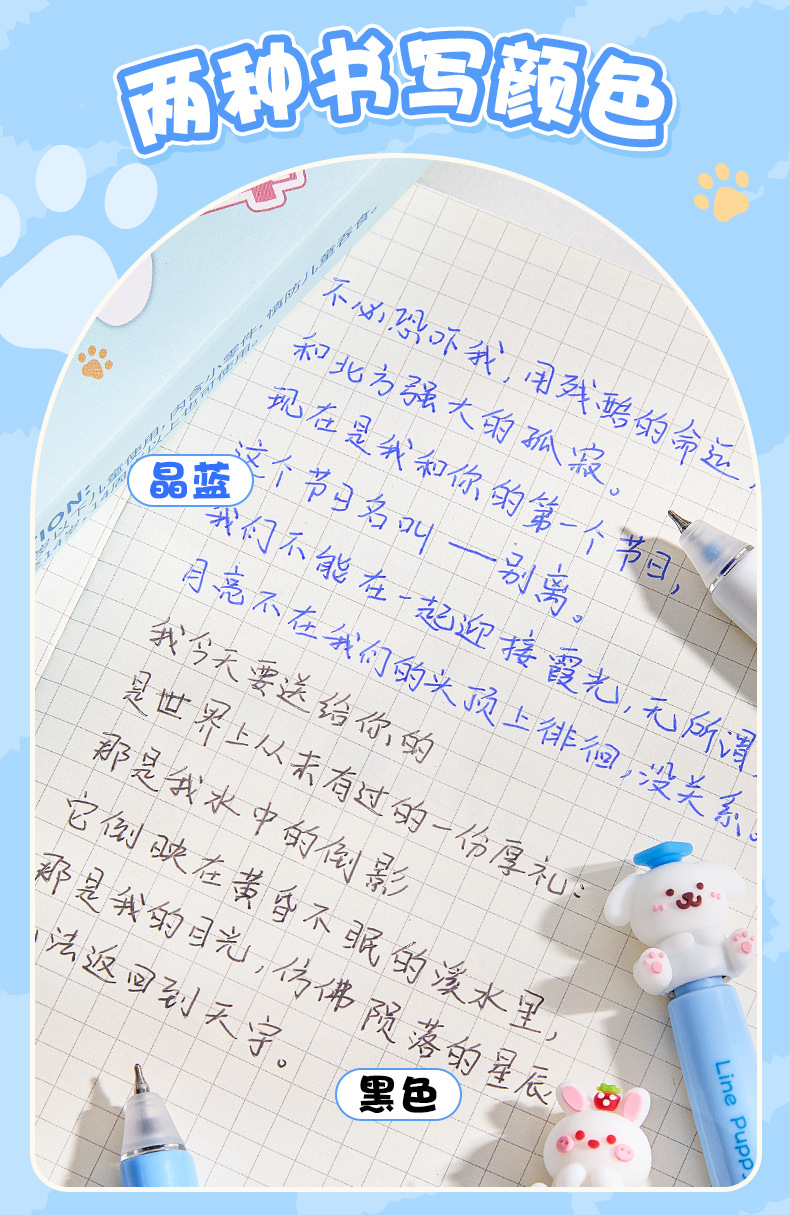 两种书写颜色
内含小零件，慎防儿童吞食。
TION:
不必恐吓我，用残酷的命运，
和北方强大的孤寂。
现在是我和你的第一个节日，
晶蓝
这个节日名叫——别离。
我们不能在一起迎接霞光，无所谓，
月亮不在我们的头顶上徘徊，没关系。
我今天要送给你的
是世界上从未有过的一份厚礼：
那是我水中的倒影
它倒映在黄昏不眠的溪水里，
那是我的目光，仿佛陨落的星辰
法返回到天宇。
黑色
Line Puppy